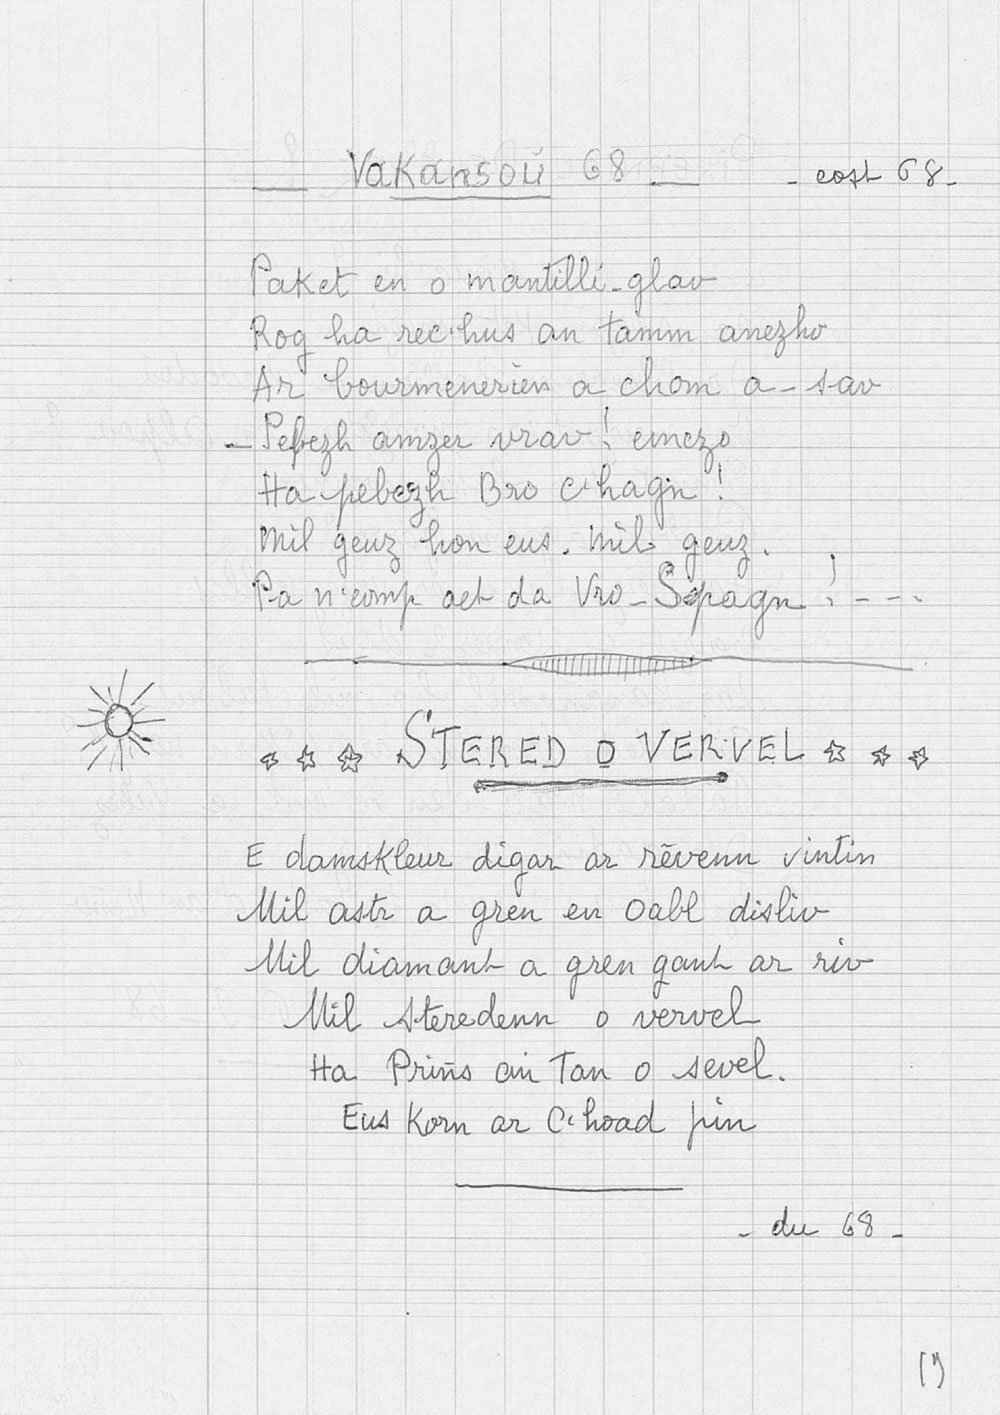 Vakansoù 68 - eost 68 -
Paket en o mantilli-glav
Rog ha rec'hus an tamm anezho
Ar bourmenerien a chom a-sav
- Pebezh amzer vrav ! emezo
Ha pebezh Bro c'hagn !
Mil geuz hon eus. Mil geuz.
Pa n'eomp aet da Vro-Spagn ! - - - .
STERED O VERVEL
E damskleur digar ar rēvenn vintin
Mil astr a gren en oabl disliv
Mil diamant a gren gant ar riv
Mil steredenn o vervel
Ha Priñs an Tan o sevel.
Eus Korn ar C'hoad pin
- du 68 -